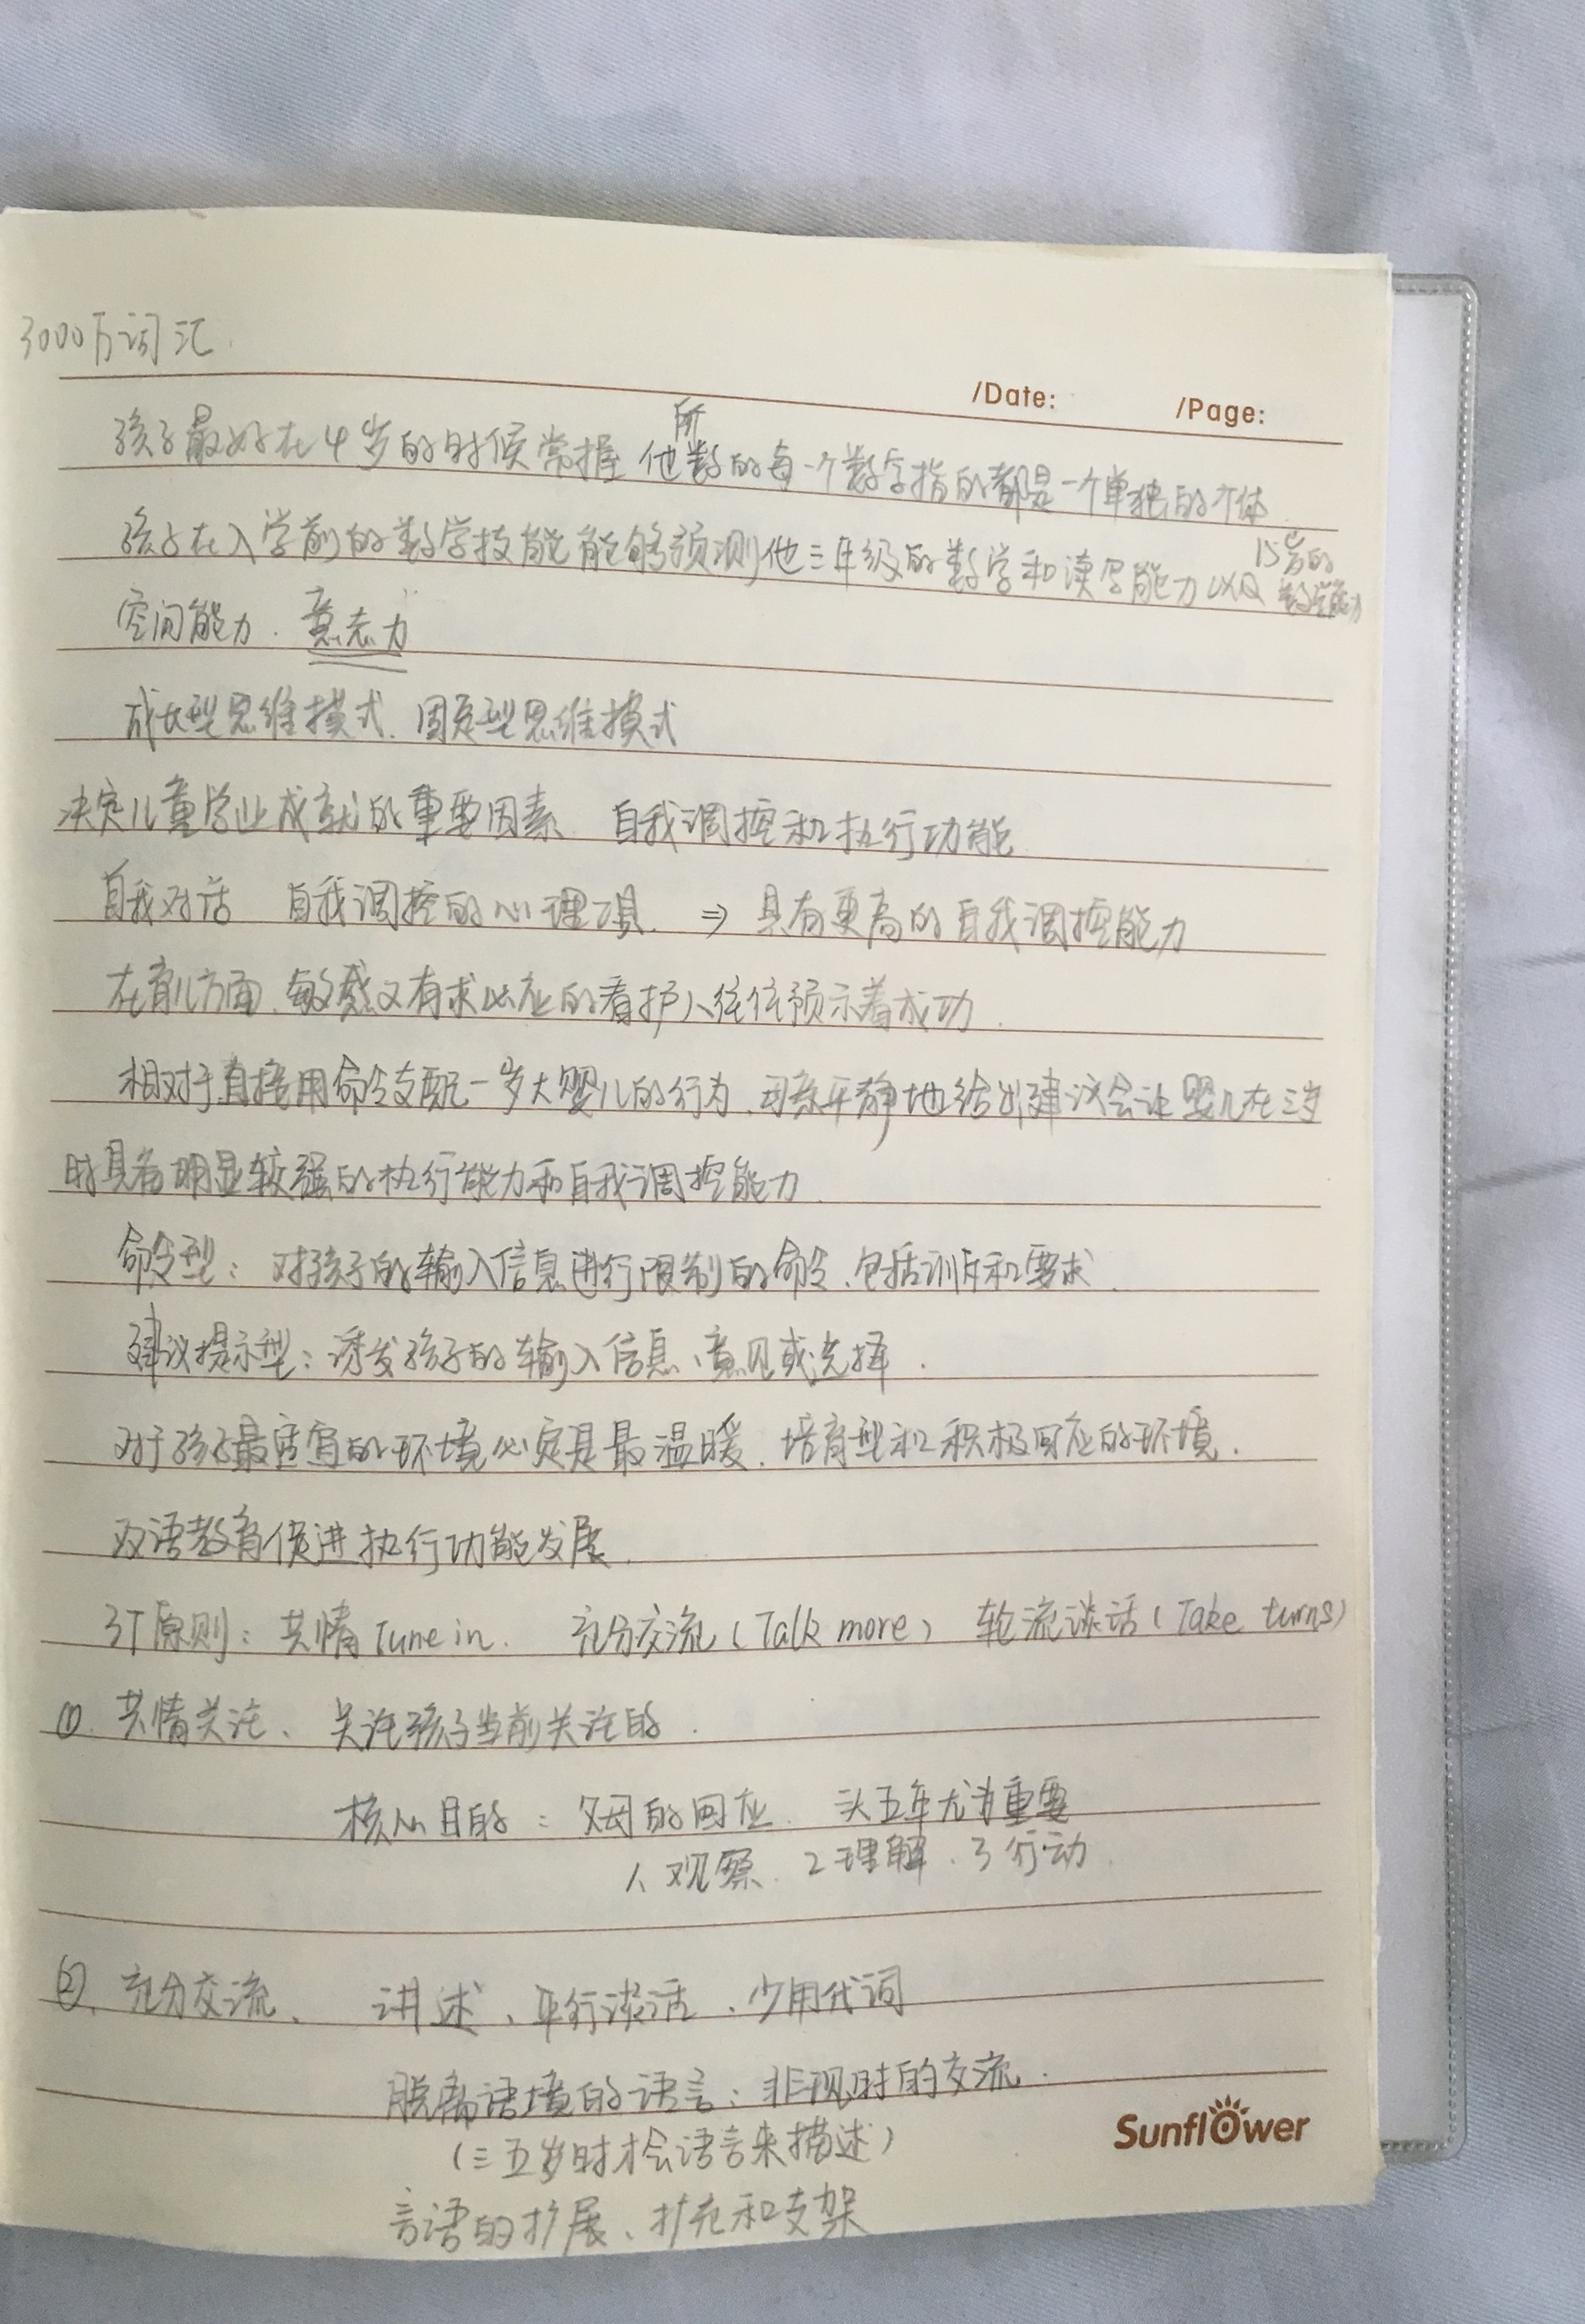 3000万词汇.
/Date: /Page:
孩子最好在4岁的时候掌握 他所数的每一个数字指的都是一个单独的个体
孩子在入学前的数学技能能够预测他三年级的数学和读写能力以及15岁的数学能力
空间能力. 意志力
成长型思维模式. 固定型思维模式
决定儿童学业成就的重要因素 自我调控和执行功能
自我对话 自我调控的心理工具. ⇒ 具有更高的自我调控能力
在育儿方面、敏感又有求必应的看护人往往预示着成功.
相对于直接用命令支配一岁大婴儿的行为、母亲平静地给出建议会让婴儿在三岁
时具备明显较强的执行能力和自我调控能力.
命令型: 对孩子的输入信息进行限制的命令、包括训斥和要求.
建议提示型: 诱发孩子的输入信息、意见或选择.
对于孩子最适宜的环境必定是最温暖、培育型和积极回应的环境.
双语教育促进执行功能发展.
3T原则: 共情Tune in. 充分交流(Talk more) 轮流谈话(Take turns)
①. 共情关注、 关注孩子当前关注的.
核心目的: 父母的回应. 头五年尤为重要
1、观察. 2理解. 3行动.
②. 充分交流、 讲述、平行谈话、少用代词
脱离语境的语言: 非现时的交流.
(三五岁时才会语言来描述)
言语的扩展、扩充和支架
Sunflower